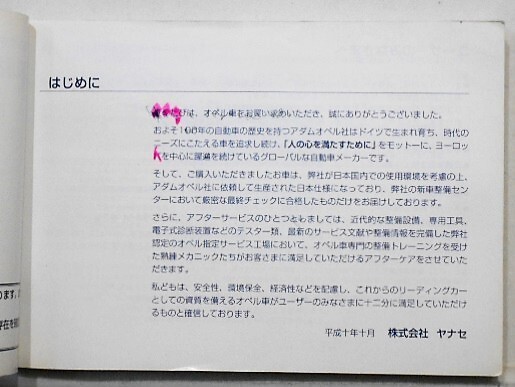 はじめに
たびは、オペル車をお買い求めいただき、誠にありがとうございました。
およそ100年の自動車の歴史を持つアダムオペル社はドイツで生まれ育ち、時代の
ニーズにこたえる車を追求し続け、「人の心を満たすために」をモットーに、ヨーロッ
パを中心に躍進を続けているグローバルな自動車メーカーです。
そして、ご購入いただきましたお車は、弊社が日本国内での使用環境を考慮の上、
アダムオペル社に依頼して生産された日本仕様になっており、弊社の新車整備セン
ターにおいて厳密な最終チェックに合格したものだけをお届けしております。
さらに、アフターサービスのひとつといたしましては、近代的な整備設備、専用工具、
電子式診断装置などのテスター類、最新のサービス文献や整備情報を完備した弊社
認定のオペル指定サービス工場において、オペル車専門の整備トレーニングを受け
た熟練メカニックたちがお客さまに満足していただけるアフターケアをさせていた
だきます。
私どもは、安全性、環境保全、経済性などを配慮し、これからのリーディングカー
としての資質を備えるオペル車がユーザーのみなさまに十二分に満足していただけ
るものと確信しております。
平成十年十月 株式会社 ヤナセ
ります。
存在を